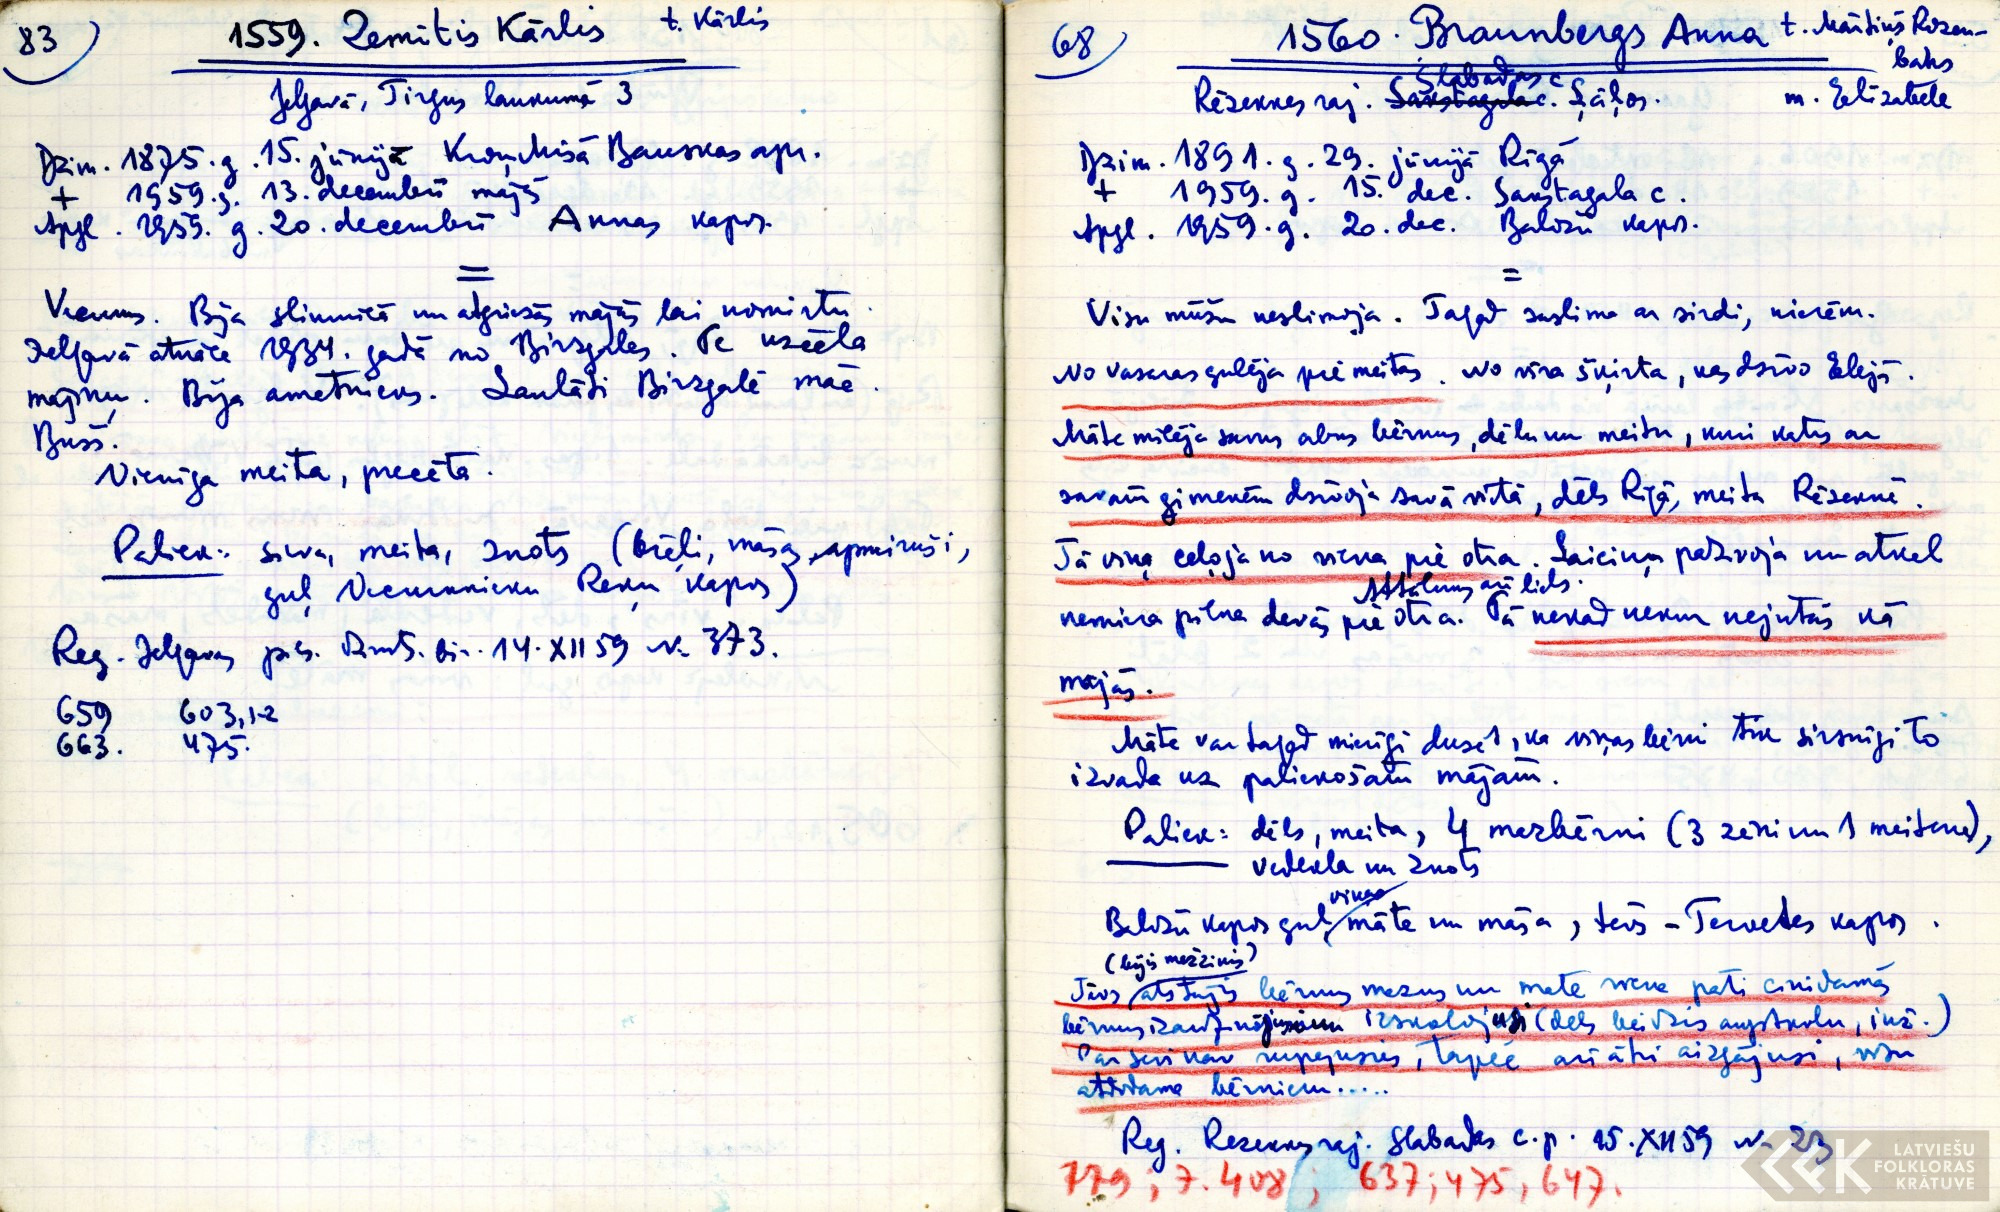 83
1559. Zemītis Kārlis t. Kārlis
Jelgavā, Tirgus laukumā 3
Dzim. 1875. g. 15. jūnijā Kroņmisā Bauskas apr.
+ 1959. g. 13. decembrī mājās
Apgl. 1959. g. 20. decembrī Annas kapos.
=
Vecums. Bija slimnīcā un atgriezās mājās lai nomirtu.
Jelgavā atnāca 1934. gadā no Birzgales. Te uzcēla
mājiņu. Bija amatnieks. Laulāti Birzgalē māc.
Bušs.
Vienīga meita, precēta.
Paliek: sieva, meita, znots (brāļi, māsas apmiruši,
guļ Vecumnieku Reņu kapos)
Reg. Jelgavas pils. Dzimts. bir. 14. XII 59 Nr. 373.
659 603,1-2
663. 475.
68
1560. Braunbergs Anna t. Mārtiņš Rozen-
baks
Slabadas c
Rēzeknes raj. Sakstagala c. Ļāļos. m. Elizabete
Dzim. 1891. g. 29. jūnijā Rīgā
+ 1959. g. 15. dec. Sakstagala c.
Apgl. 1959. g. 20. dec. Baložu kapos.
=
Visu mūžu neslimoja. Tagad saslima ar sirdi, nierēm.
No vasaras gulēja pie meitas. No vīra šķirta, kas dzīvo Elejā.
Māte mīlēja savus abus bērnus, dēlu un meitu, kuri katrs ar
savām ģimenēm dzīvoja savā vietā, dēls Rīgā, meita Rēzeknē.
Tā viņa ceļoja no viena pie otra. Laiciņu padzīvoja un atkal
Attālums arī liels.
nemiera pilna devās pie otra. Tā nekad nekur nejutās kā
mājās.
Māte var tagad mierīgi dusēt, ka viņas bērni tik sirsnīgi to
izvada uz paliekošām mājām.
Paliek: dēls, meita, 4 mazbērni (3 zēni un 1 meitene),
vedekla un znots
viņas
Baložu kapos guļ māte un māsa, tēvs - Tērvetes kapos.
(bijis mežzinis)
Tēvs atstājis bērnus mazus un māte viena pati cīnīdamās
bērnus izaudzinājusi un izskolojusi (dēls beidzis augstskolu, inž.)
Par sevi nav rūpējusies, tāpēc arī ātri aizgājusi, visu
atdodama bērniem.....
Reg. Rēzeknes raj. Slabadas c.p. 15. XII 59 Nr 23
779; 7.408; 637; 475, 647.
LATVIEŠU
FOLKLORAS
KRĀTUVE